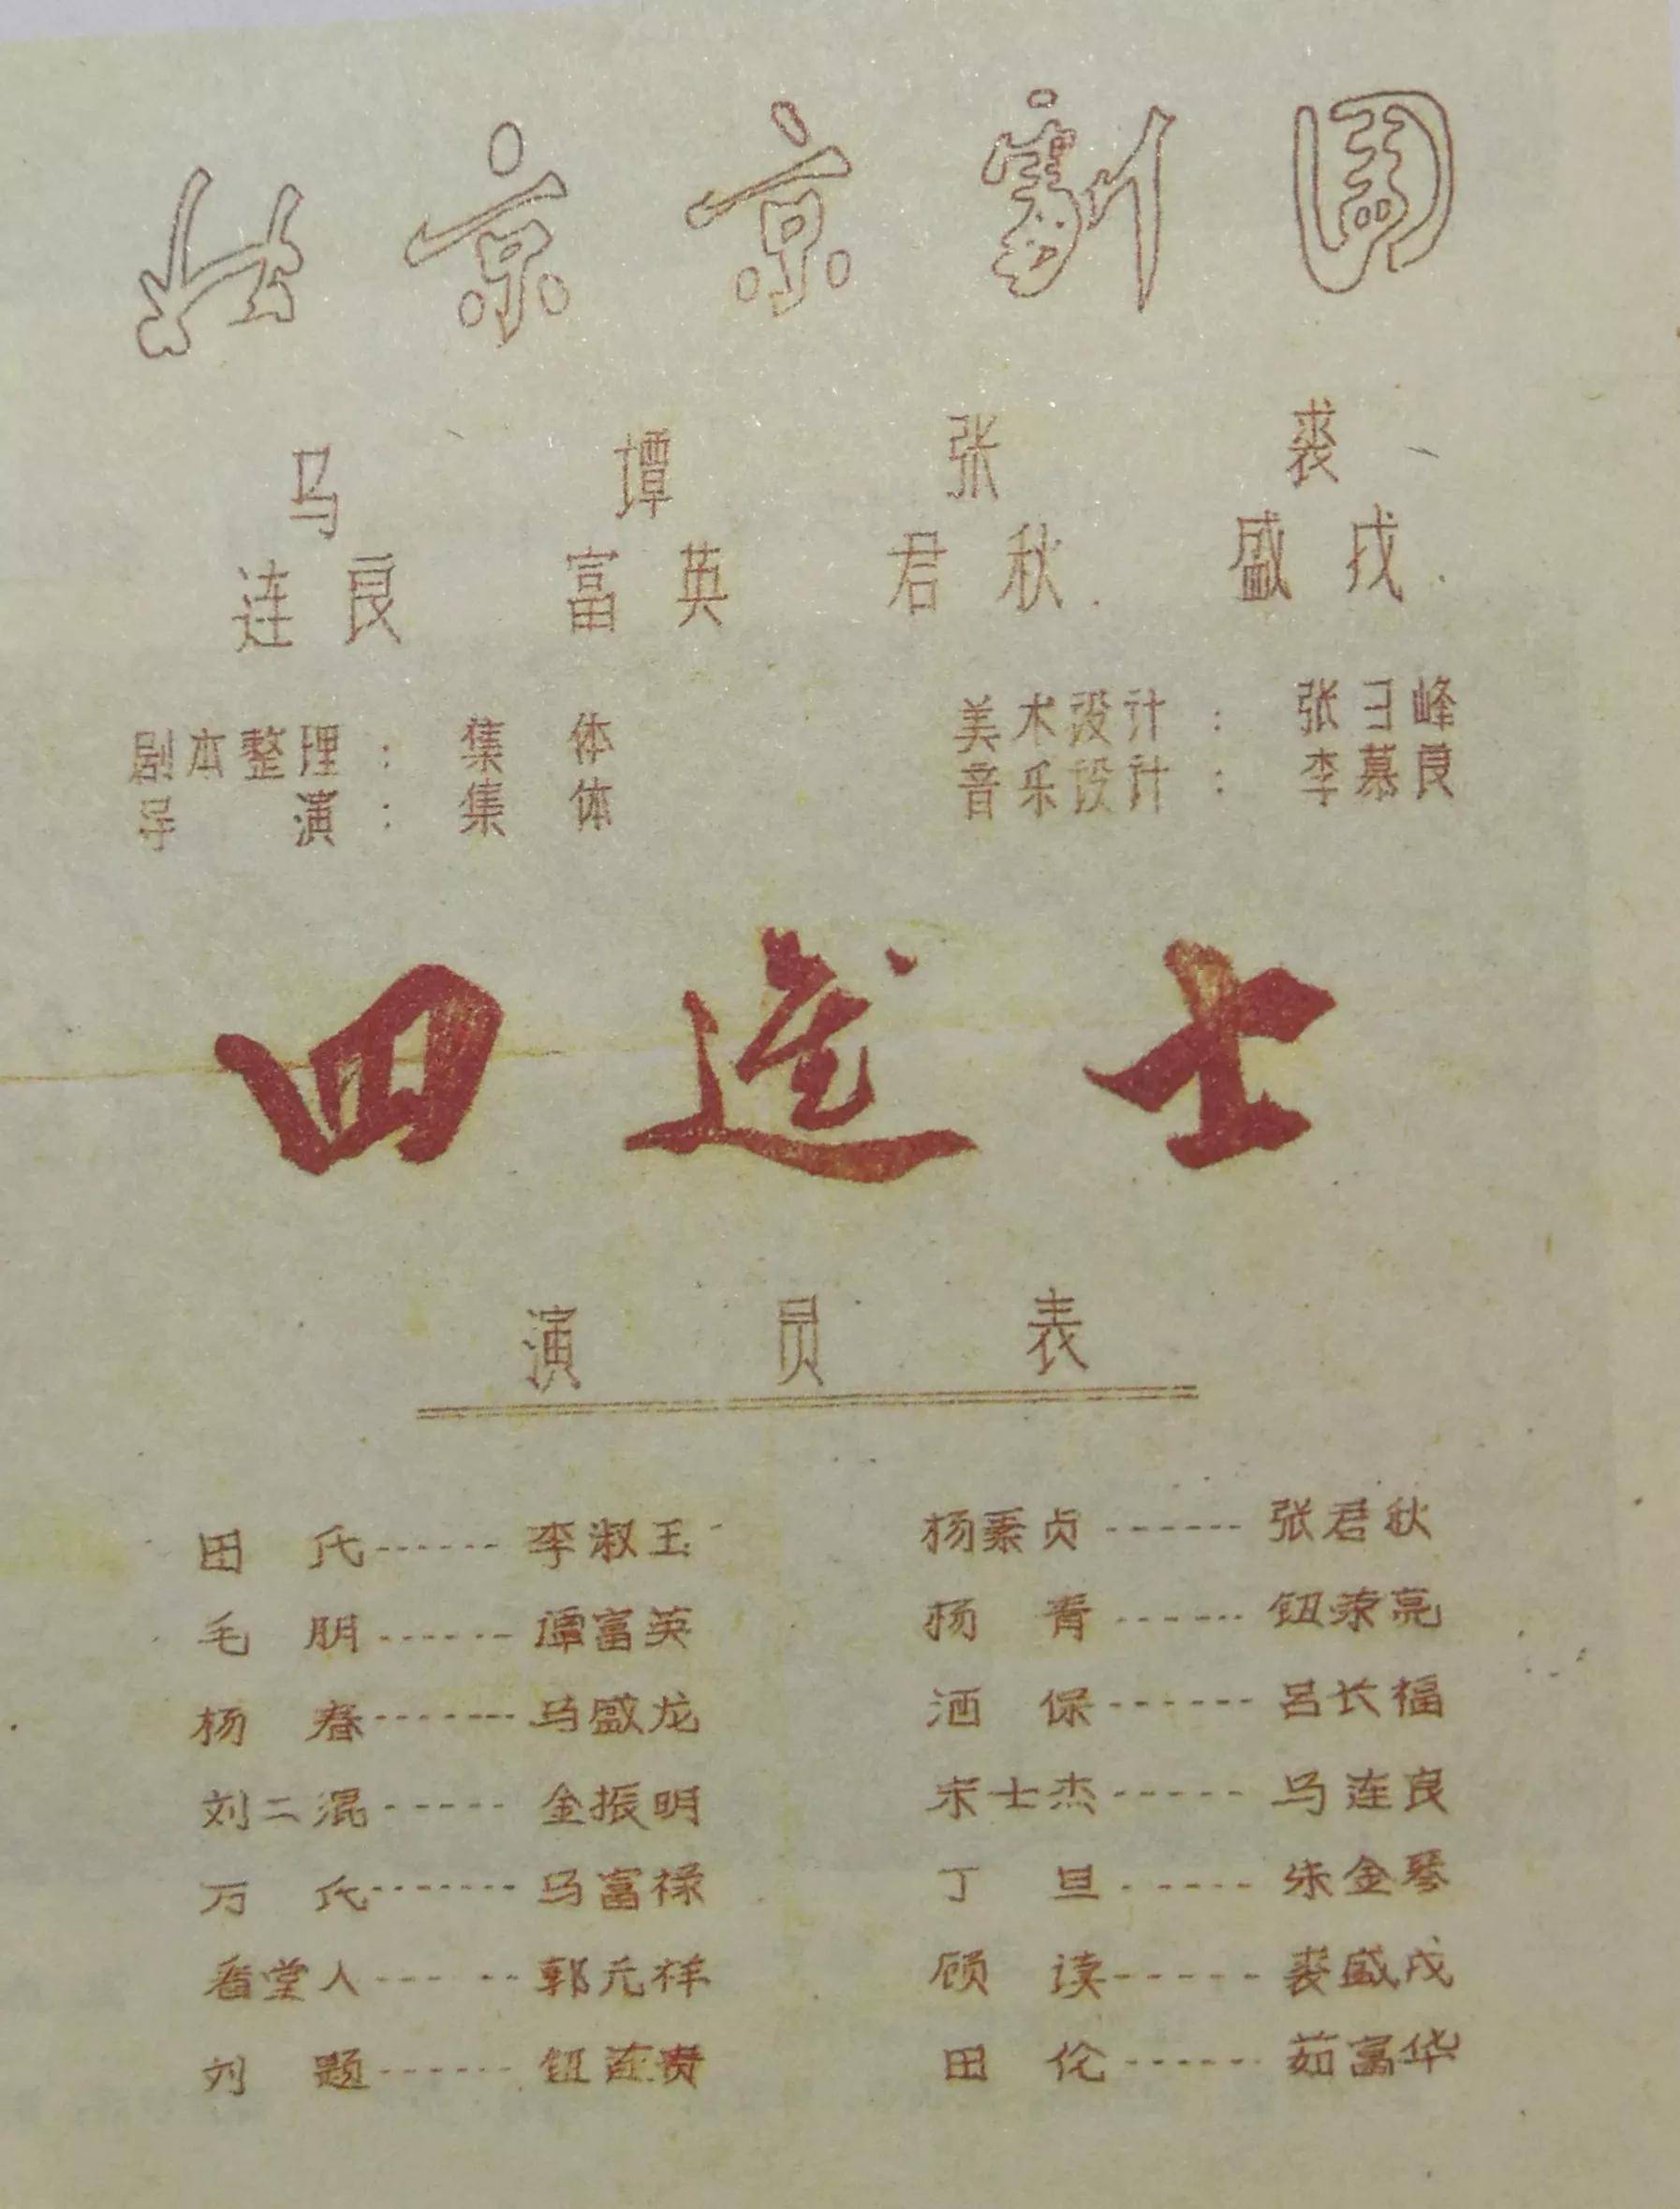 北京京剧团
马 谭 张 裘
连良 富英 君秋 盛戎
剧本整理：集体 美术设计：张曰峰
导演：集体 音乐设计：李慕良
四进士
演员表
田氏------李淑玉 杨素贞------张君秋
毛朋------谭富英 杨青------钮荣亮
杨春-------马盛龙 酒保------吕长福
刘二混-----金振明 宋士杰-----马连良
万氏-------马富禄 丁旦-----朱金琴
看堂人-----郭元祥 顾读-----裘盛戎
刘题------钮连贵 田伦------茹富华